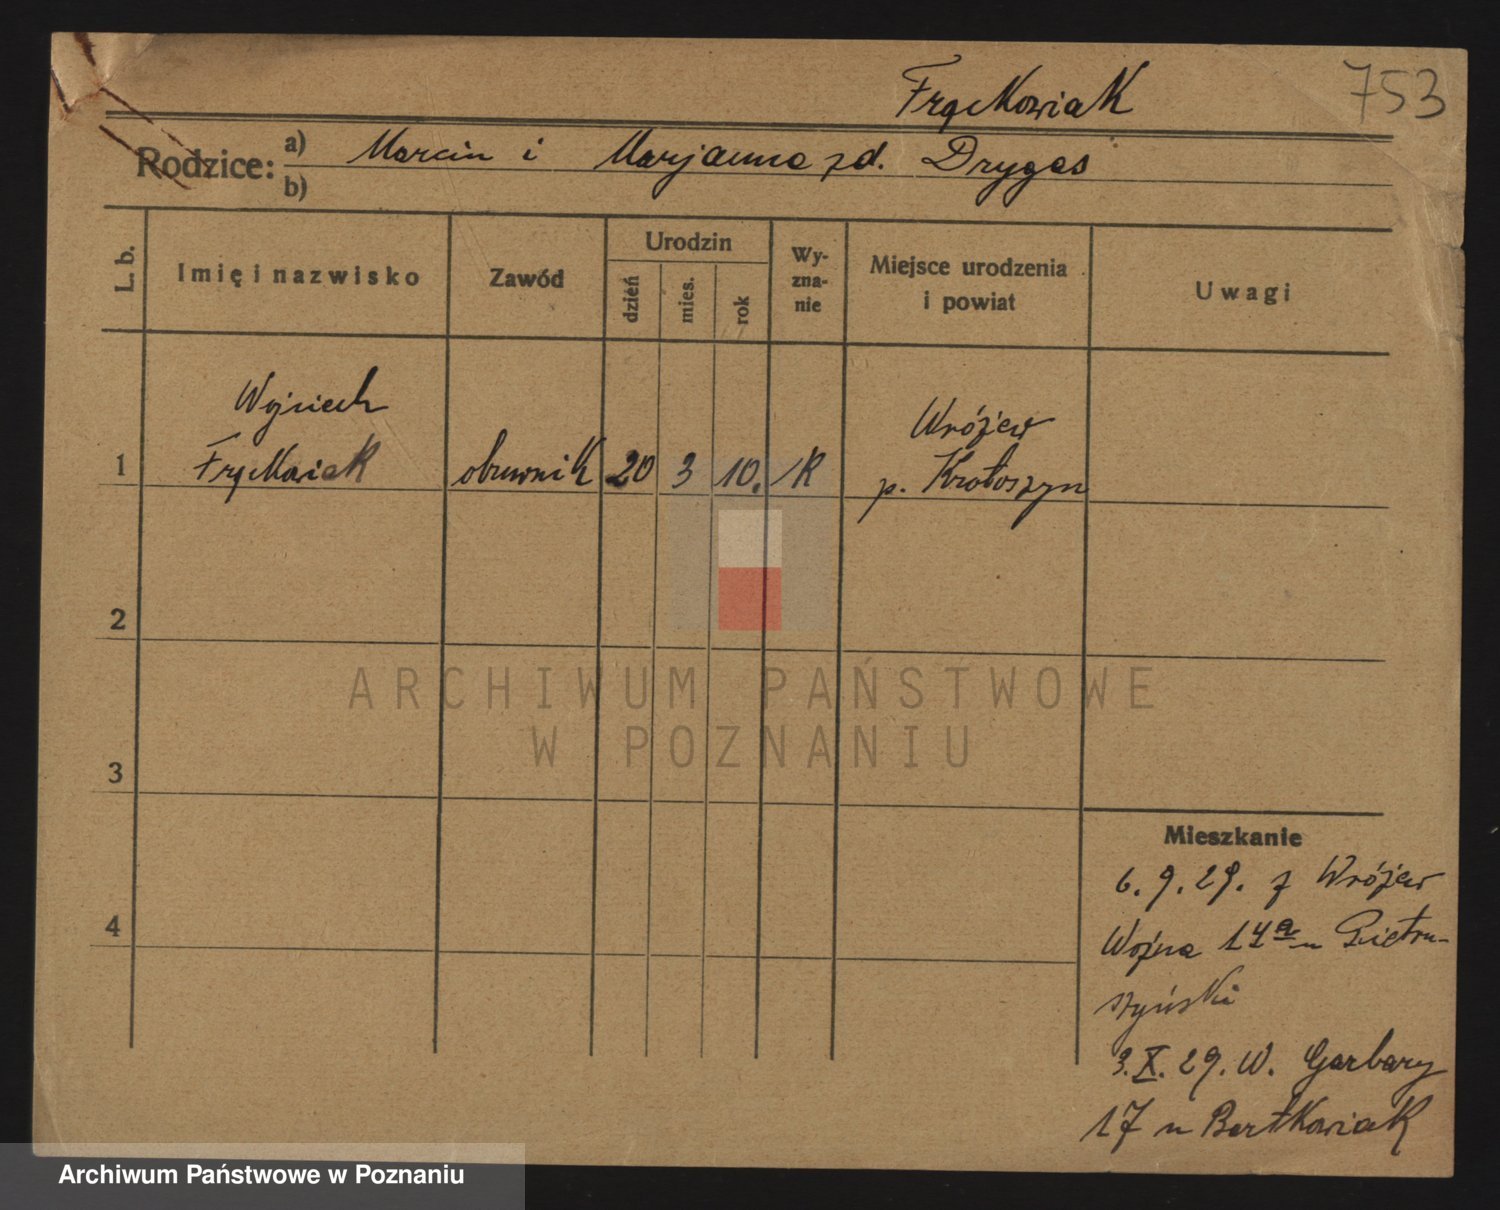 Frąckowiak
753
Rodzice: a) Marcin i Marjanna zd. Drygas
b)
L. b. Imię i nazwisko Zawód Urodzin dzień mies. rok Wy-zna-nie Miejsce urodzenia i powiat Uwagi
Wojciech Wróżew
1 Frąckowiak obuwnik 20 3 10. rk p. Krotoszyn
2
3
4
Mieszkanie
6. 9. 29. z Wróżew
Wojna 14a u Pietru-
szyński
3. X. 29. W. Garbary
17 u Bartkowiak
ARCHIWUM PAŃSTWOWE
W POZNANIU
Archiwum Państwowe w Poznaniu